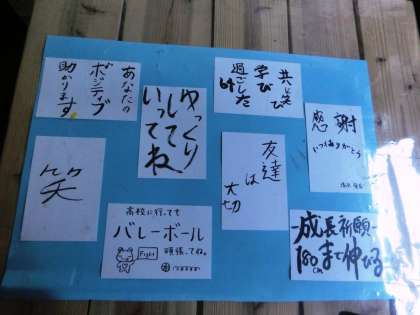 あなたの
ポジティブ
助かります
ゆっくり
していってね
共に笑い
学び
過ごした
感謝
いつもありがとう
笑
友達
は
大切
高校に行っても
バレーボール
頑張ってね。
Fight
成長祈願
180cmまで伸びる